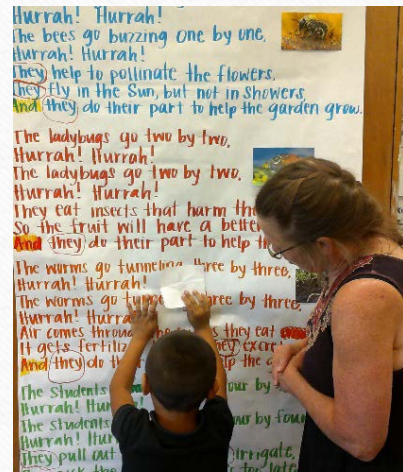 Hurrah! Hurrah!
The bees go buzzing one by one,
Hurrah! Hurrah!
They help to pollinate the flowers,
They fly in the Sun, but not in showers
And they do their part to help the garden grow.
The ladybugs go two by two,
Hurrah! Hurrah!
The ladybugs go two by two.
Hurrah! Hurrah!
They eat insects that harm the
So the fruit will have a better
And they do their part to help
The worms go tunneling three by three,
Hurrah! Hurrah!
The worms go three by three,
Hurrah! Hurrah
Air comes they eat
It gets they
And they do
The students our by
Hurrah!
The students our by four
Hurrah!
They pull out irrigate,
the for later